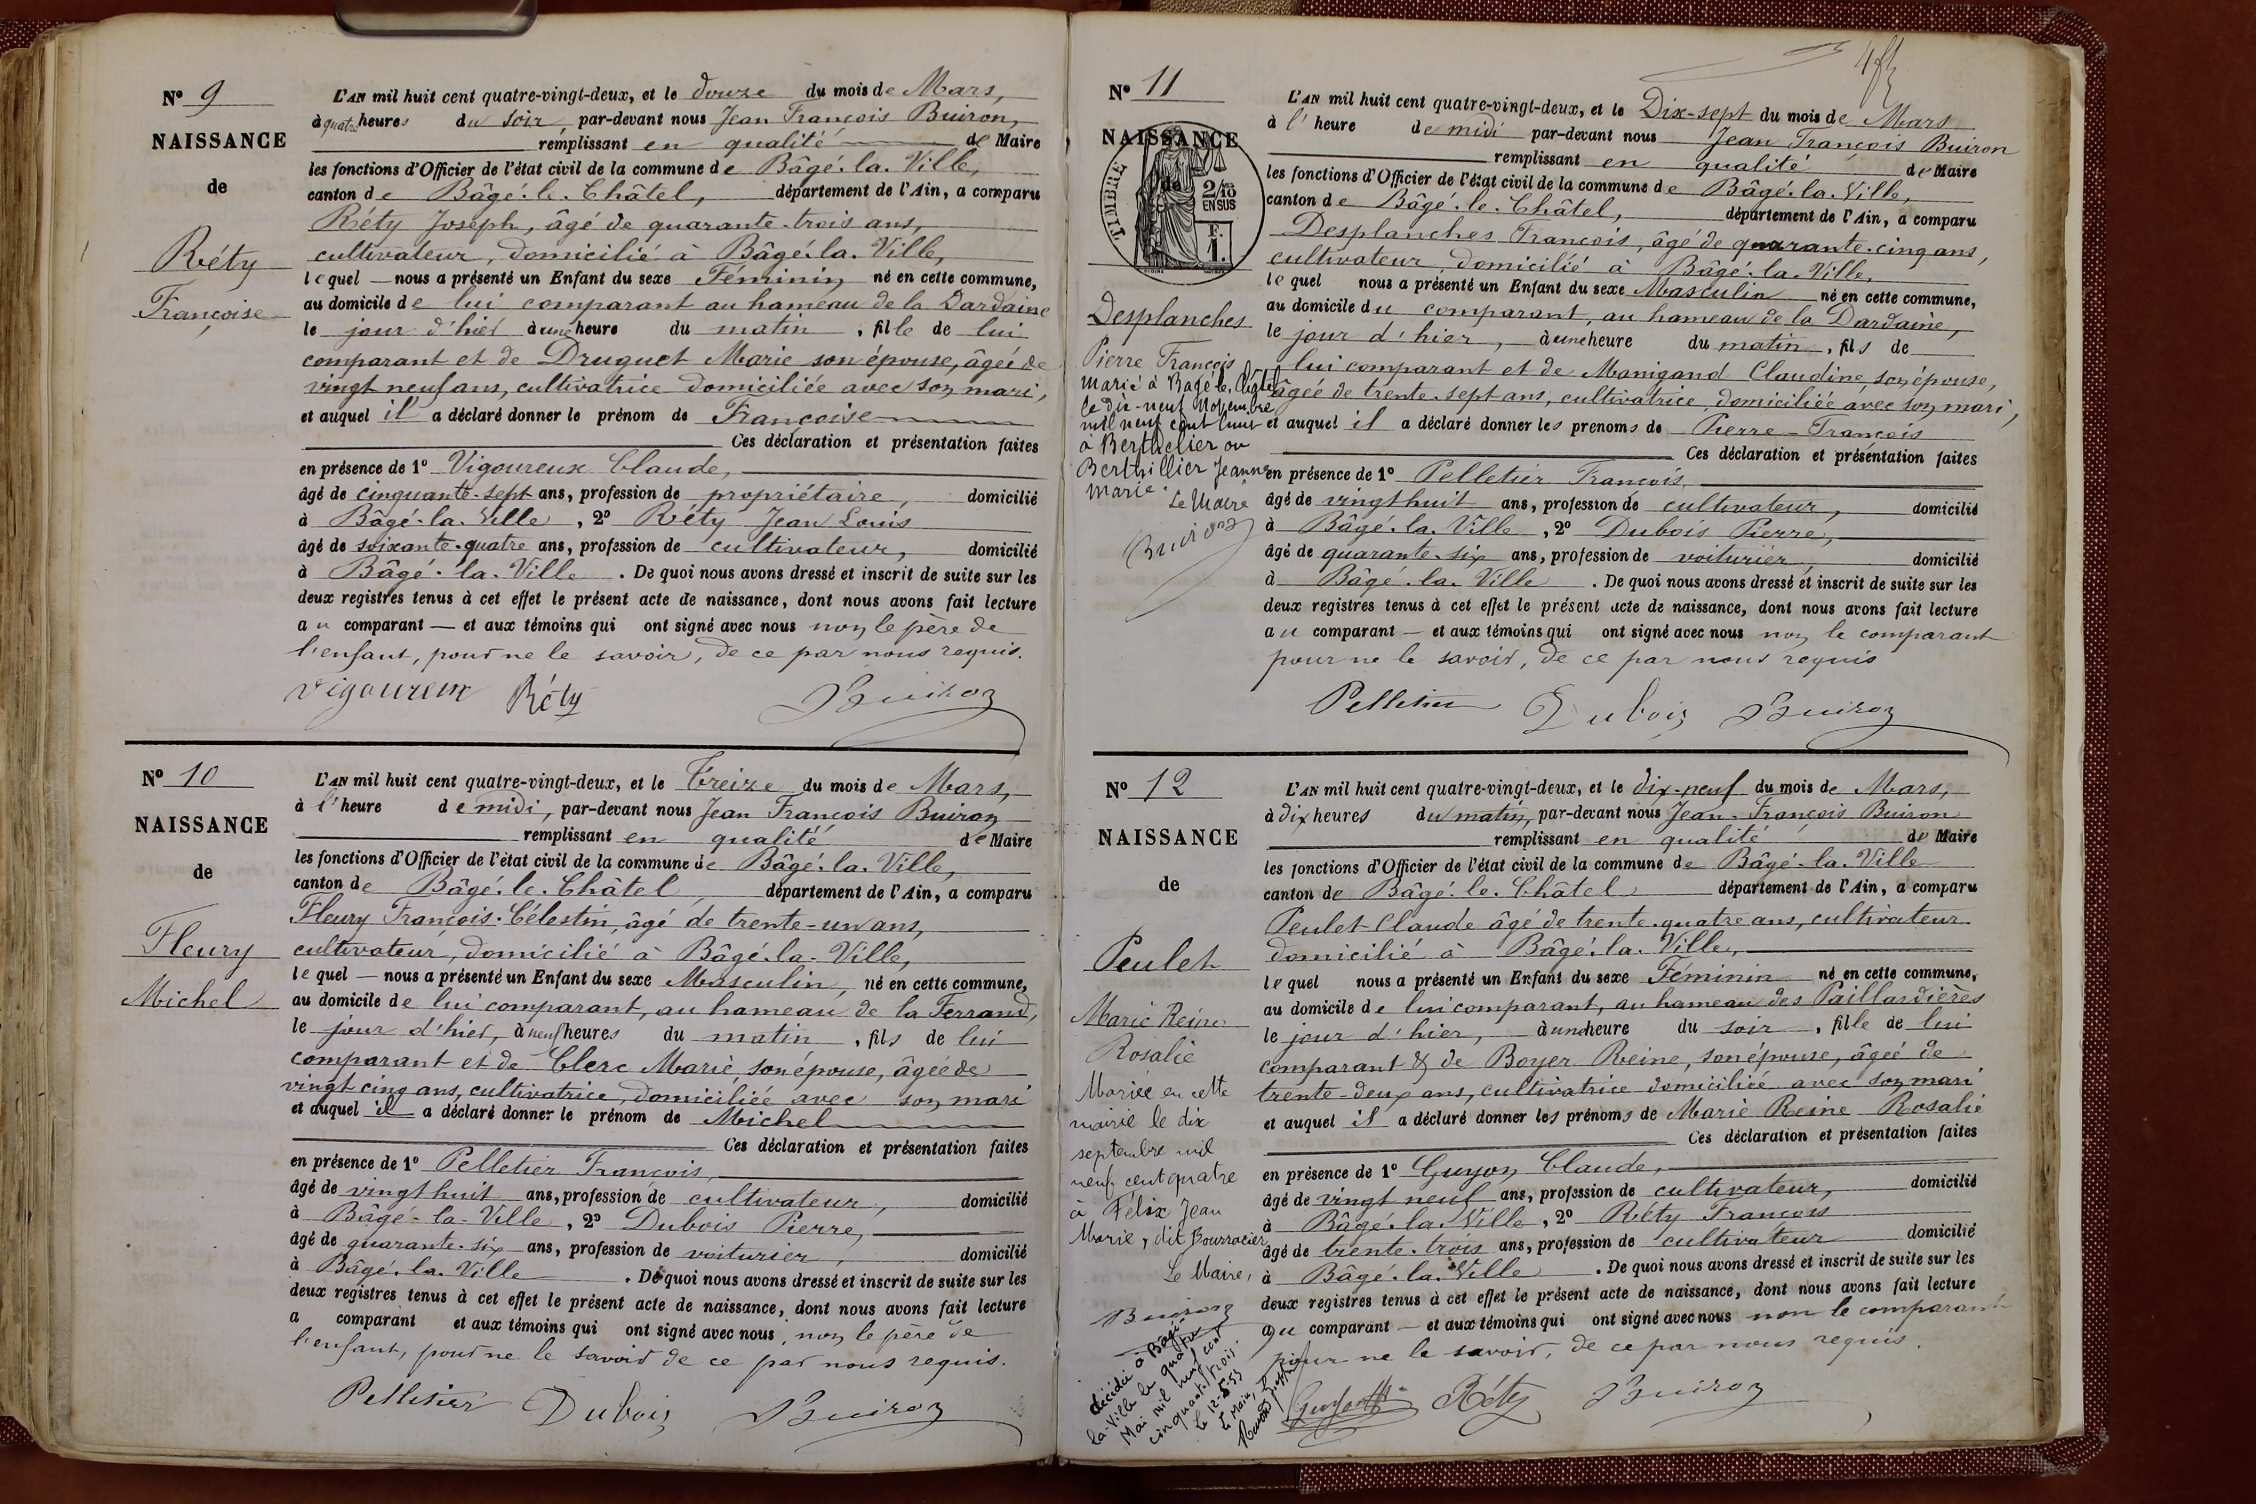 Nº 9
NAISSANCE
de
Réty
Françoise
L'AN mil huit cent quatre-vingt-deux, et le douze du mois de Mars,
à quatre heures du soir, par-devant nous Jean François Buiron,
remplissant en qualité de Maire
les fonctions d'Officier de l'état civil de la commune de Bâgé-la-Ville,
canton de Bâgé-le-Châtel, département de l'Ain, a comparu
Réty Joseph, âgé de quarante-trois ans,
cultivateur, domicilié à Bâgé-la-Ville,
lequel — nous a présenté un Enfant du sexe Féminin né en cette commune,
au domicile de lui comparant au hameau de la Dardaine
le jour d'hier à une heure du matin, fille de lui
comparant et de Druguet Marie son épouse, âgée de
vingt neuf ans, cultivatrice domiciliée avec son mari,
et auquel il a déclaré donner le prénom de Françoise
Ces déclaration et présentation faites
en présence de 1º Vigoureux Claude,
âgé de cinquante-sept ans, profession de propriétaire, domicilié
à Bâgé-la-Ville, 2º Réty Jean Louis
âgé de soixante-quatre ans, profession de cultivateur, domicilié
à Bâgé-la-Ville. De quoi nous avons dressé et inscrit de suite sur les
deux registres tenus à cet effet le présent acte de naissance, dont nous avons fait lecture
au comparant — et aux témoins qui ont signé avec nous non le père de
l'enfant, pour ne le savoir, de ce par nous requis.
Vigoureux Réty Buiron
Nº 10
NAISSANCE
de
Fleury
Michel
L'AN mil huit cent quatre-vingt-deux, et le Treize du mois de Mars,
à l'heure de midi, par-devant nous Jean François Buiron
remplissant en qualité de Maire
les fonctions d'Officier de l'état civil de la commune de Bâgé-la-Ville,
canton de Bâgé-le-Châtel, département de l'Ain, a comparu
Fleury François-Célestin, âgé de trente-un ans,
cultivateur, domicilié à Bâgé-la-Ville,
lequel — nous a présenté un Enfant du sexe Masculin, né en cette commune,
au domicile de lui comparant, au hameau de la Ferrand,
le jour d'hier, à neuf heures du matin, fils de lui
comparant et de Clerc Marie son épouse, âgée de
vingt cinq ans, cultivatrice, domiciliée avec son mari
et auquel il a déclaré donner le prénom de Michel
Ces déclaration et présentation faites
en présence de 1º Pelletier François,
âgé de vingt huit ans, profession de cultivateur, domicilié
à Bâgé-la-Ville, 2º Dubois Pierre,
âgé de quarante-six ans, profession de voiturier, domicilié
à Bâgé-la-Ville. De quoi nous avons dressé et inscrit de suite sur les
deux registres tenus à cet effet le présent acte de naissance, dont nous avons fait lecture
a comparant et aux témoins qui ont signé avec nous, non le père de
l'enfant, pour ne le savoir de ce par nous requis.
Pelletier Dubois Buiron
Nº 11
NAISSANCE
de
TIMBRE
2/10
EN SUS
F.
1.
Desplanches
Pierre François
Marié à Bâgé-le-Châtel
le dix-neuf Novembre
mil neuf cent huit
à Berthelier ou
Berthillier Jeanne
Marie.
Le Maire
Buiron
L'AN mil huit cent quatre-vingt-deux, et le Dix-sept du mois de Mars
à l'heure de midi par-devant nous Jean François Buiron
remplissant en qualité de Maire
les fonctions d'Officier de l'état civil de la commune de Bâgé-la-Ville,
canton de Bâgé-le-Châtel, département de l'Ain, a comparu
Desplanches François, âgé de quarante-cinq ans,
cultivateur, domicilié à Bâgé-la-Ville,
lequel nous a présenté un Enfant du sexe Masculin né en cette commune,
au domicile du comparant, au hameau de la Dardaine,
le jour d'hier, à une heure du matin, fils de
lui comparant et de Manigand Claudine, son épouse,
âgée de trente-sept ans, cultivatrice, domiciliée avec son mari,
et auquel il a déclaré donner les prenoms de Pierre-François
Ces déclaration et présentation faites
en présence de 1º Pelletier François,
âgé de vingt huit ans, profession de cultivateur, domicilié
à Bâgé-la-Ville, 2º Dubois Pierre,
âgé de quarante-six ans, profession de voiturier, domicilié
à Bâgé-la-Ville. De quoi nous avons dressé et inscrit de suite sur les
deux registres tenus à cet effet le présent acte de naissance, dont nous avons fait lecture
au comparant — et aux témoins qui ont signé avec nous non le comparant
pour ne le savoir, de ce par nous requis
Pelletier Dubois Buiron
Nº 12
NAISSANCE
de
Peulet
Marie Reine
Rosalie
Mariée en cette
mairie le dix
septembre mil
neuf cent quatre
à Félix Jean
Marie, dit Bourracier
Le Maire,
Buiron
décédée à Bâgé-
la-Ville le quatre
Mai mil neuf cent
cinquante trois
Le 12-5-53
Le Maire,
L'AN mil huit cent quatre-vingt-deux, et le dix-neuf du mois de Mars,
à dix heures du matin, par-devant nous Jean-François Buiron
remplissant en qualité de Maire
les fonctions d'Officier de l'état civil de la commune de Bâgé-la-Ville
canton de Bâgé-le-Châtel département de l'Ain, a comparu
Peulet Claude âgé de trente-quatre ans, cultivateur
domicilié à Bâgé-la-Ville,
lequel nous a présenté un Enfant du sexe Féminin né en cette commune,
au domicile de lui comparant, au hameau des Paillardières
le jour d'hier, à une heure du soir, fille de lui
comparant & de Boyer Reine, son épouse, âgée de
trente-deux ans, cultivatrice domiciliée avec son mari
et auquel il a déclaré donner les prénoms de Marie Reine Rosalie
Ces déclaration et présentation faites
en présence de 1º Guyon Claude,
âgé de vingt neuf ans, profession de cultivateur, domicilié
à Bâgé-la-Ville, 2º Réty François
âgé de trente-trois ans, profession de cultivateur domicilié
à Bâgé-la-Ville. De quoi nous avons dressé et inscrit de suite sur les
deux registres tenus à cet effet le présent acte de naissance, dont nous avons fait lecture
au comparant — et aux témoins qui ont signé avec nous non le comparant
pour ne le savoir, de ce par nous requis.
Réty Buiron